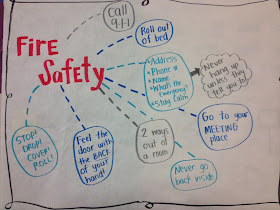 Call
9-1-1
Roll out
of bed
Fire
Safety
•Address
•Phone #
•Name
•What's the
Emergency?
•Stay Calm
Never
hang up
unless they
tell you!
STOP!
DROP!
COVER!
ROLL!
Feel the
door with
the BACK
of your
hand!
2 ways out
of a room
Go to your
MEETING
place
Never go
back inside